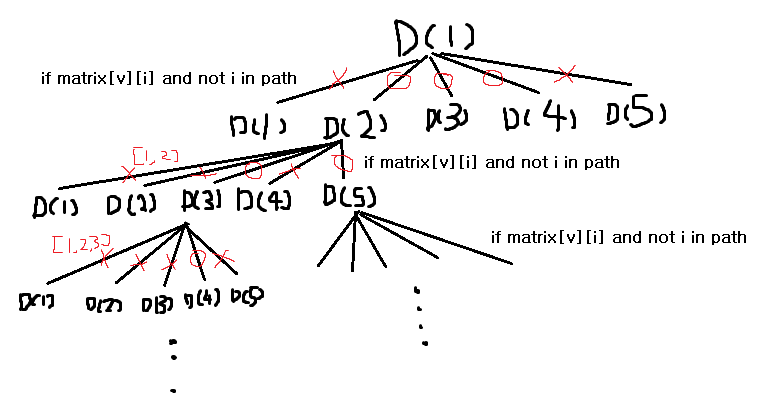 D(1)
if matrix[v][i] and not i in path
D(1) D(2) D(3) D(4) D(5)
[1,2]
if matrix[v][i] and not i in path
D(1) D(2) D(3) D(4) D(5)
[1,2,3]
if matrix[v][i] and not i in path
D(1) D(2) D(3) D(4) D(5)